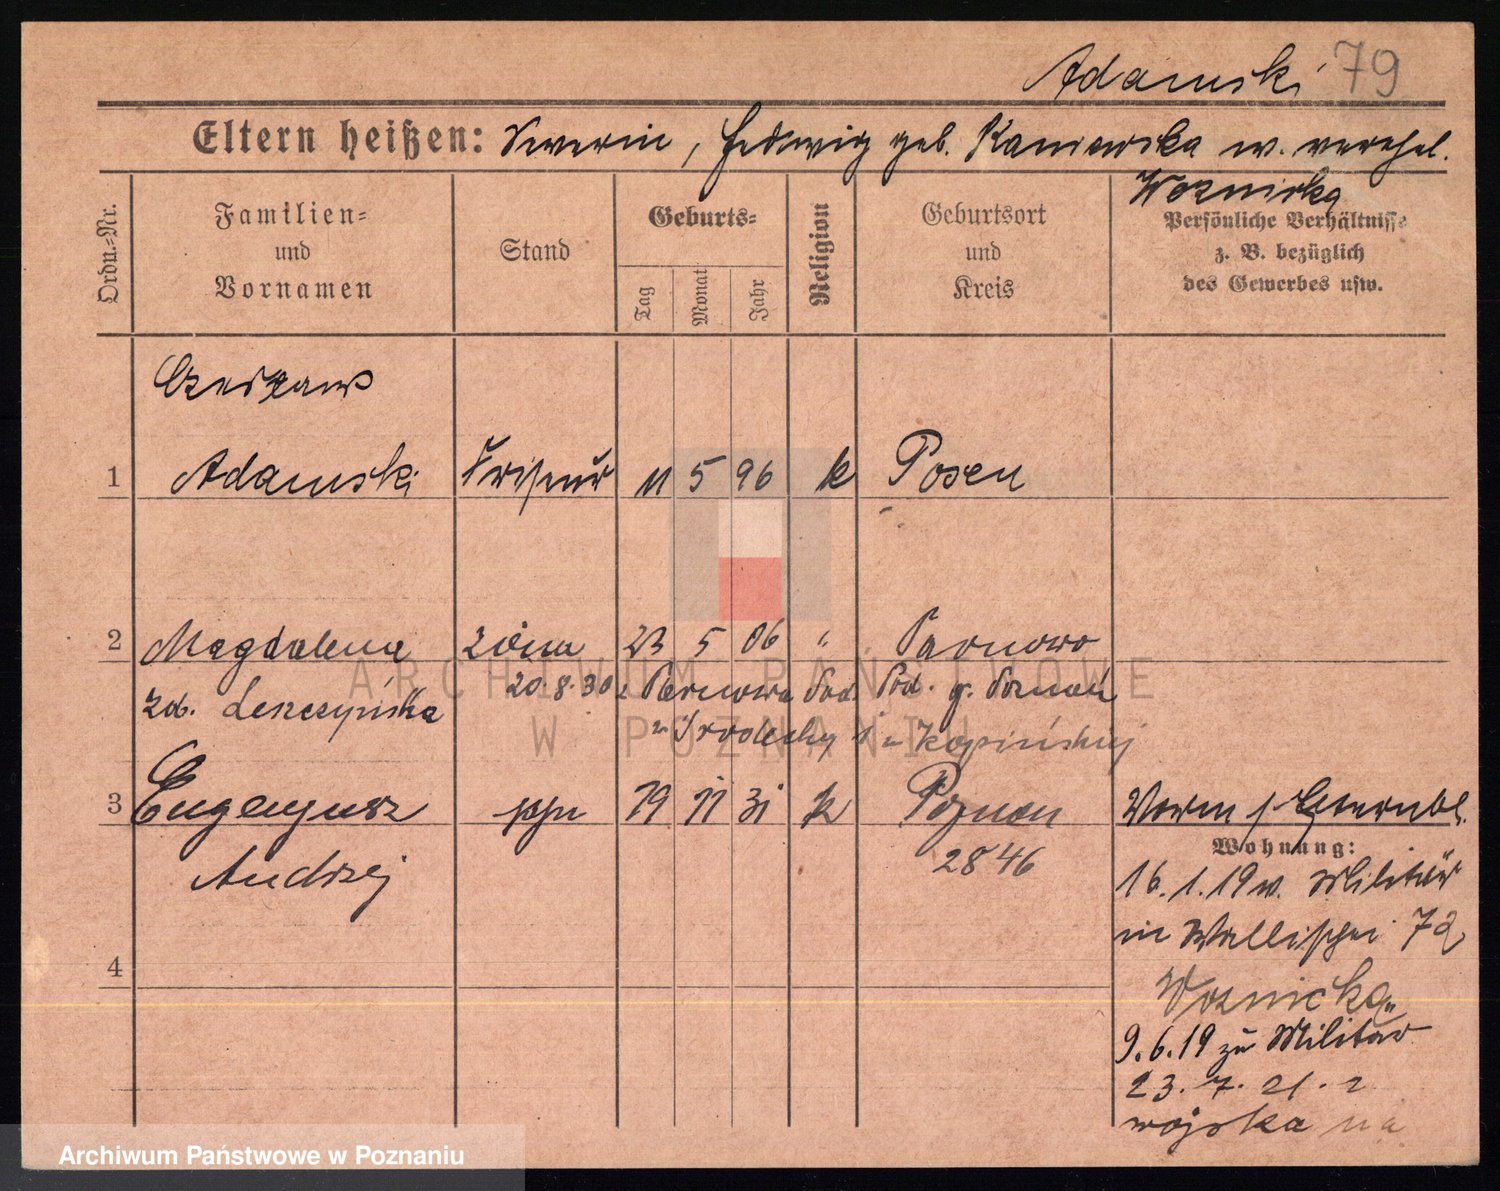 Adamski 79
Eltern heißen: Severin, Hedwig geb. Kaniewska w. verehel.
Woznicka
Ordn.-Nr.
Familien-
und
Vornamen
Stand
Geburts-
Tag
Monat
Jahr
Religion
Geburtsort
und
Kreis
Persönliche Verhältnisse
z. B. bezüglich
des Gewerbes usw.
Czesław
1 Adamski Friseur 11 5 96 k Posen
2 Magdalena żona 23 5 06 " Tarnowo
zd. Leszczyńska 20.8.30 z Tarnowa Pod. Pod. p. Poznań
3 Eugenjusz ppn 19 11 31 k Poznań
Andrzej
2846
Wohnung:
16.1.19 v. Militär
in Wallischei 72
Woznicka
9.6.19 zu Militär
23.7.21. z
wojska na
4
ARCHIWUM PAŃSTWOWE
W POZNANIU
Archiwum Państwowe w Poznaniu